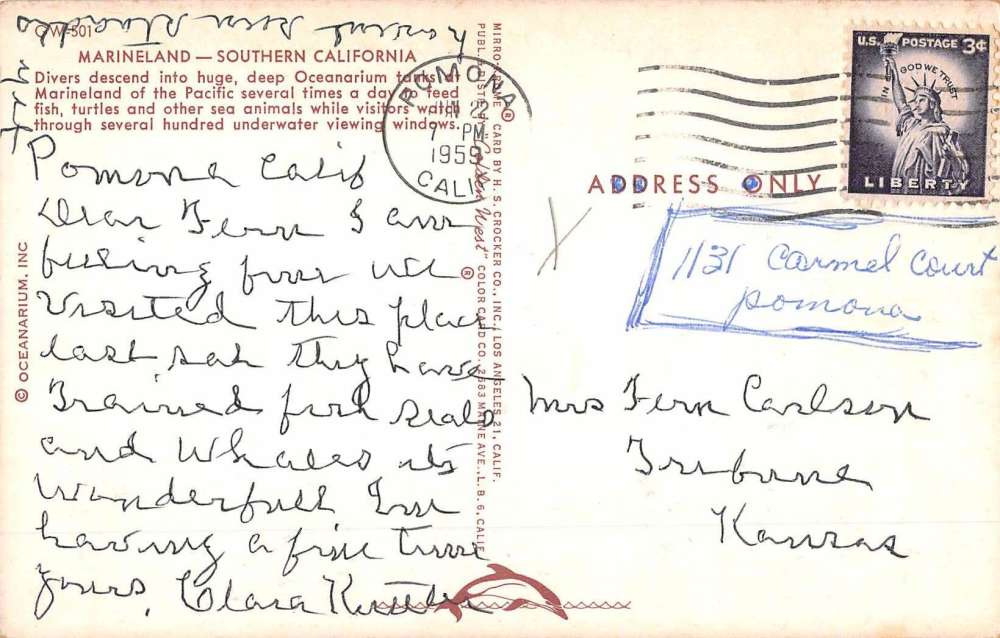 C/W-501
MARINELAND — SOUTHERN CALIFORNIA
Divers descend into huge, deep Oceanarium tanks at
Marineland of the Pacific several times a day to feed
fish, turtles and other sea animals while visitors watch
through several hundred underwater viewing windows.
Pomona Calif
Dear Fern I am
feeling fine we
visited this place
last sat they have
Trained fish seals
and Whales its
Wonderfull Im
having a fine time
yours, Clara
havent seen
yet
© OCEANARIUM, INC
MIRRO-KROME ® CARD BY H. S. CROCKER CO., INC., LOS ANGELES 21, CALIF.
"Golden West" ® COLOR CARD CO., 2583 MAINE AVE., L. B. 6, CALIF.
POMONA
2
7 PM
1959
CALIF.
U.S. POSTAGE 3¢
IN GOD WE TRUST
LIBERTY
ADDRESS ONLY
1131 Carmel Court
pomona
Mrs Fern Carlson
Tribune
Kansas